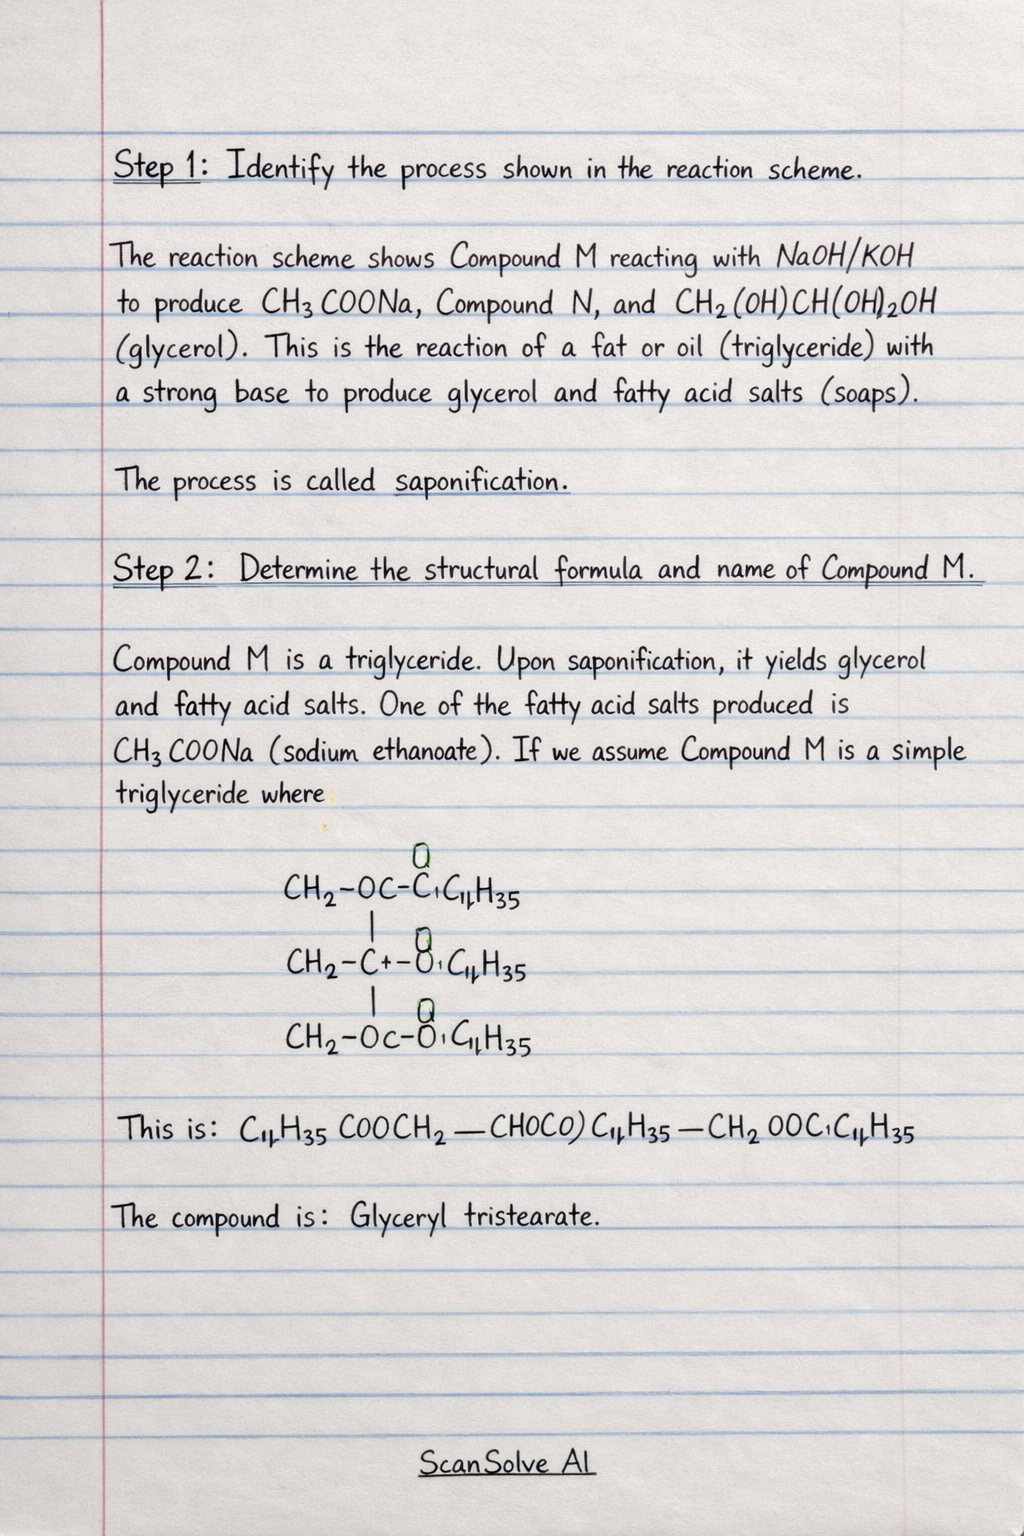 Step 1: Identify the process shown in the reaction scheme.
The reaction scheme shows Compound M reacting with NaOH/KOH
to produce CH₃COONa, Compound N, and CH₂(OH)CH(OH)₂OH
(glycerol). This is the reaction of a fat or oil (triglyceride) with
a strong base to produce glycerol and fatty acid salts (soaps).
The process is called saponification.
Step 2: Determine the structural formula and name of Compound M.
Compound M is a triglyceride. Upon saponification, it yields glycerol
and fatty acid salts. One of the fatty acid salts produced is
CH₃COONa (sodium ethanoate). If we assume Compound M is a simple
triglyceride where
O
CH₂-OC-C
H₃₅
O
CH₂-C+-O
H₃₅
O
CH₂-OC-O
H₃₅
This is:
H₃₅ COOCH₂ — CHOCO)
H₃₅ — CH₂ OOC
H₃₅
The compound is: Glyceryl tristearate.
ScanSolve AI